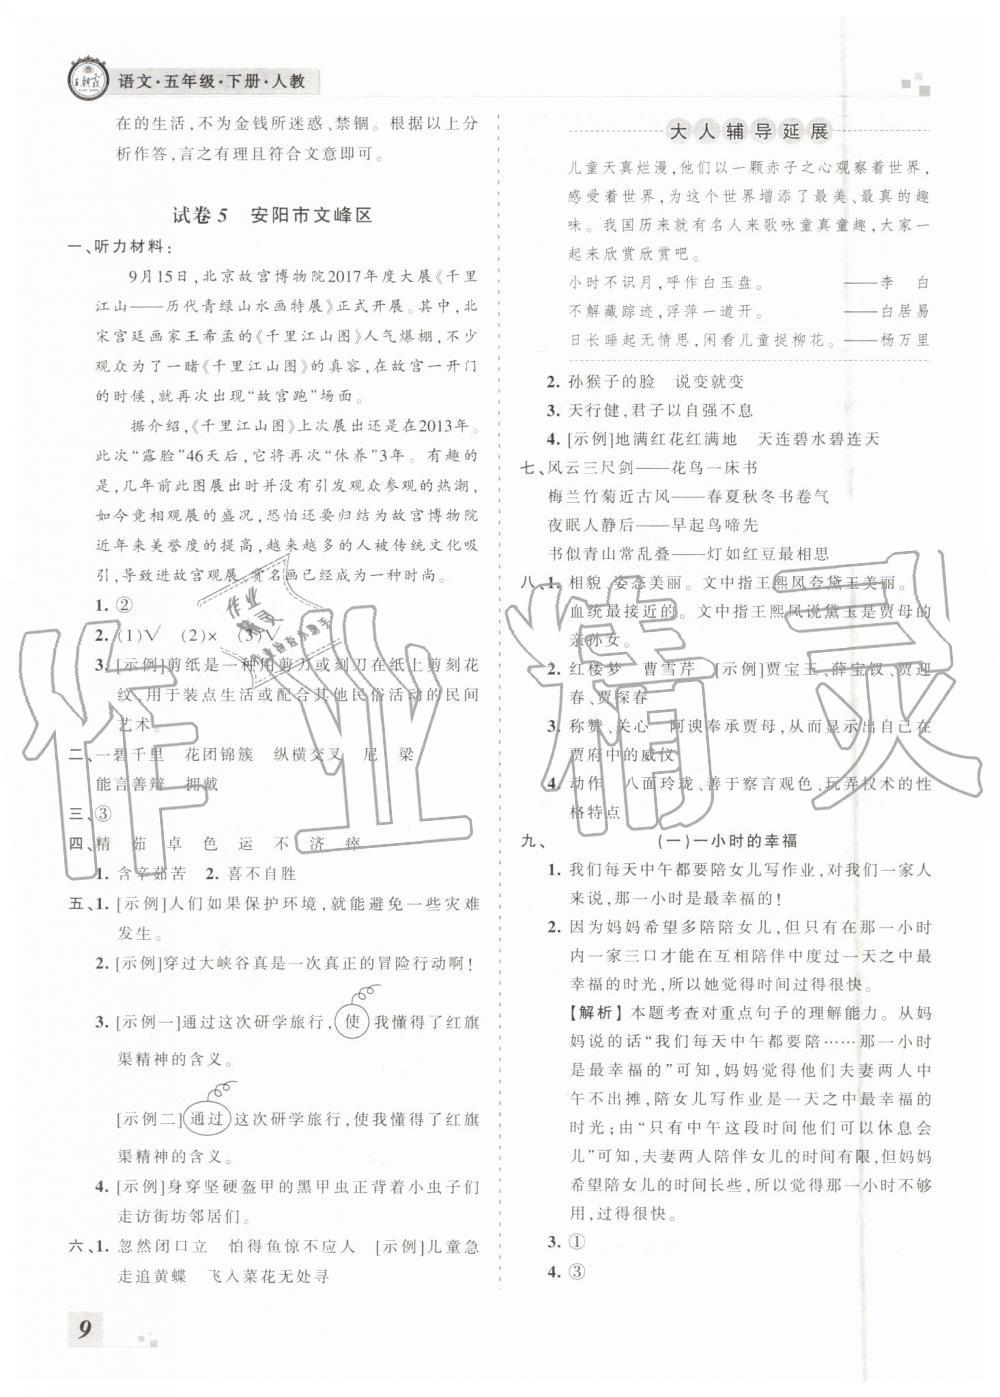 王朝霞
语文·五年级·下册·人教
在的生活,不为金钱所迷惑、禁锢。根据以上分
析作答,言之有理且符合文意即可。
试卷5 安阳市文峰区
一、听力材料:
9月15日,北京故宫博物院2017年度大展《千里
江山——历代青绿山水画特展》正式开展。其中,北
宋宫廷画家王希孟的《千里江山图》人气爆棚,不少
观众为了一睹《千里江山图》的真容,在故宫一开门
的时候,就再次出现“故宫跑”场面。
据介绍,《千里江山图》上次展出还是在2013年。
此次“露脸”46天后,它被要再次“休养”3年。有趣的
是,几年前此图展出时并没有引发观众参观的热潮,
如今竞相观展的盛况,恐怕还要归结为故宫博物院
近年来美誉度的提高,越来越多的人被传统文化吸
引,导致进故宫观展、赏名画已经成为一种时尚。
1. ②
2. (1)√ (2)× (3)√
3. [示例]剪纸是一种用剪刀或刻刀在纸上剪刻花
纹,用于装点生活或配合其他民俗活动的民间
艺术。
二、一碧千里 花团锦簇 纵横交叉 尼 梁
能言善辩 拥戴
三、③
四、精 茹 卓 色 运 不 济 瘁
1. 含辛茹苦 2. 喜不自胜
五、1. [示例]人们如果保护环境,就能避免一些灾难
发生。
2. [示例]穿过大峡谷真是一次真正的冒险行动啊!
3. [示例一]通过这次研学旅行,使我懂得了红旗
渠精神的含义。
[示例二]通过这次研学旅行,使我懂得了红旗
渠精神的含义。
4. [示例]身穿坚硬盔甲的黑甲虫正背着小虫子们
走访街坊邻居们。
六、1. 忽然闭口立 怕得鱼惊不应人 [示例]儿童急
走追黄蝶 飞入菜花无处寻
9
大人辅导延展
儿童天真烂漫,他们以一颗赤子之心观察着世界,
感受着世界,为这个世界增添了最美、最真的趣
味。我国历来就有名人来歌咏童真童趣,你也一
起来欣赏欣赏吧。
小时不识月,呼作白玉盘。 ——李 白
不解藏踪迹,浮萍一道开。 ——白居易
日长睡起无情思,闲看儿童捉柳花。——杨万里
2. 孙猴子的脸 说变就变
3. 天行健,君子以自强不息
4. [示例]地满红花红满地 天连碧水碧连天
七、风云三尺剑——花鸟一床书
梅兰竹菊近古风——春夏秋冬书卷气
夜眠人静后——早起鸟啼先
书似青山常乱叠——灯如红豆最相思
八、1. 相貌、姿态美丽。文中指王熙凤夸黛玉美丽。
血统最接近的。文中指王熙凤说黛玉是贾母的
亲孙女。
2. 红楼梦 曹雪芹 [示例]贾宝玉、薛宝钗、贾迎
春、贾探春
3. 称赞、关心 阿谀奉承贾母,从而显示出自己在
贾府中的威仪
4. 动作 八面玲珑、善于察言观色、玩弄权术的性
格特点
九、 (一)一小时的幸福
1. 我们每天中午都要陪女儿写作业,对我们一家人
来说,那一小时是最幸福的!
2. 因为妈妈希望多陪陪女儿,但只有在那一小时
内一家三口才能在互相陪伴中度过一天之中最
幸福的时光,所以她觉得时间过得很快。
【解析】本题考查对重点句子的理解能力。从妈
妈说的话“我们每天中午都要陪……那一小时
是最幸福的”可知,妈妈觉得他们夫妻两人中
午不出摊,陪女儿写作业是一天之中最幸福的
时光;由“只有中午这段时间他们可以休息会
儿”可知,夫妻两人陪伴女儿的时间有限,但妈妈
希望陪女儿的时间长些,所以那一小时不够
用,过得很快。
3. ①
4. ③
作业精灵